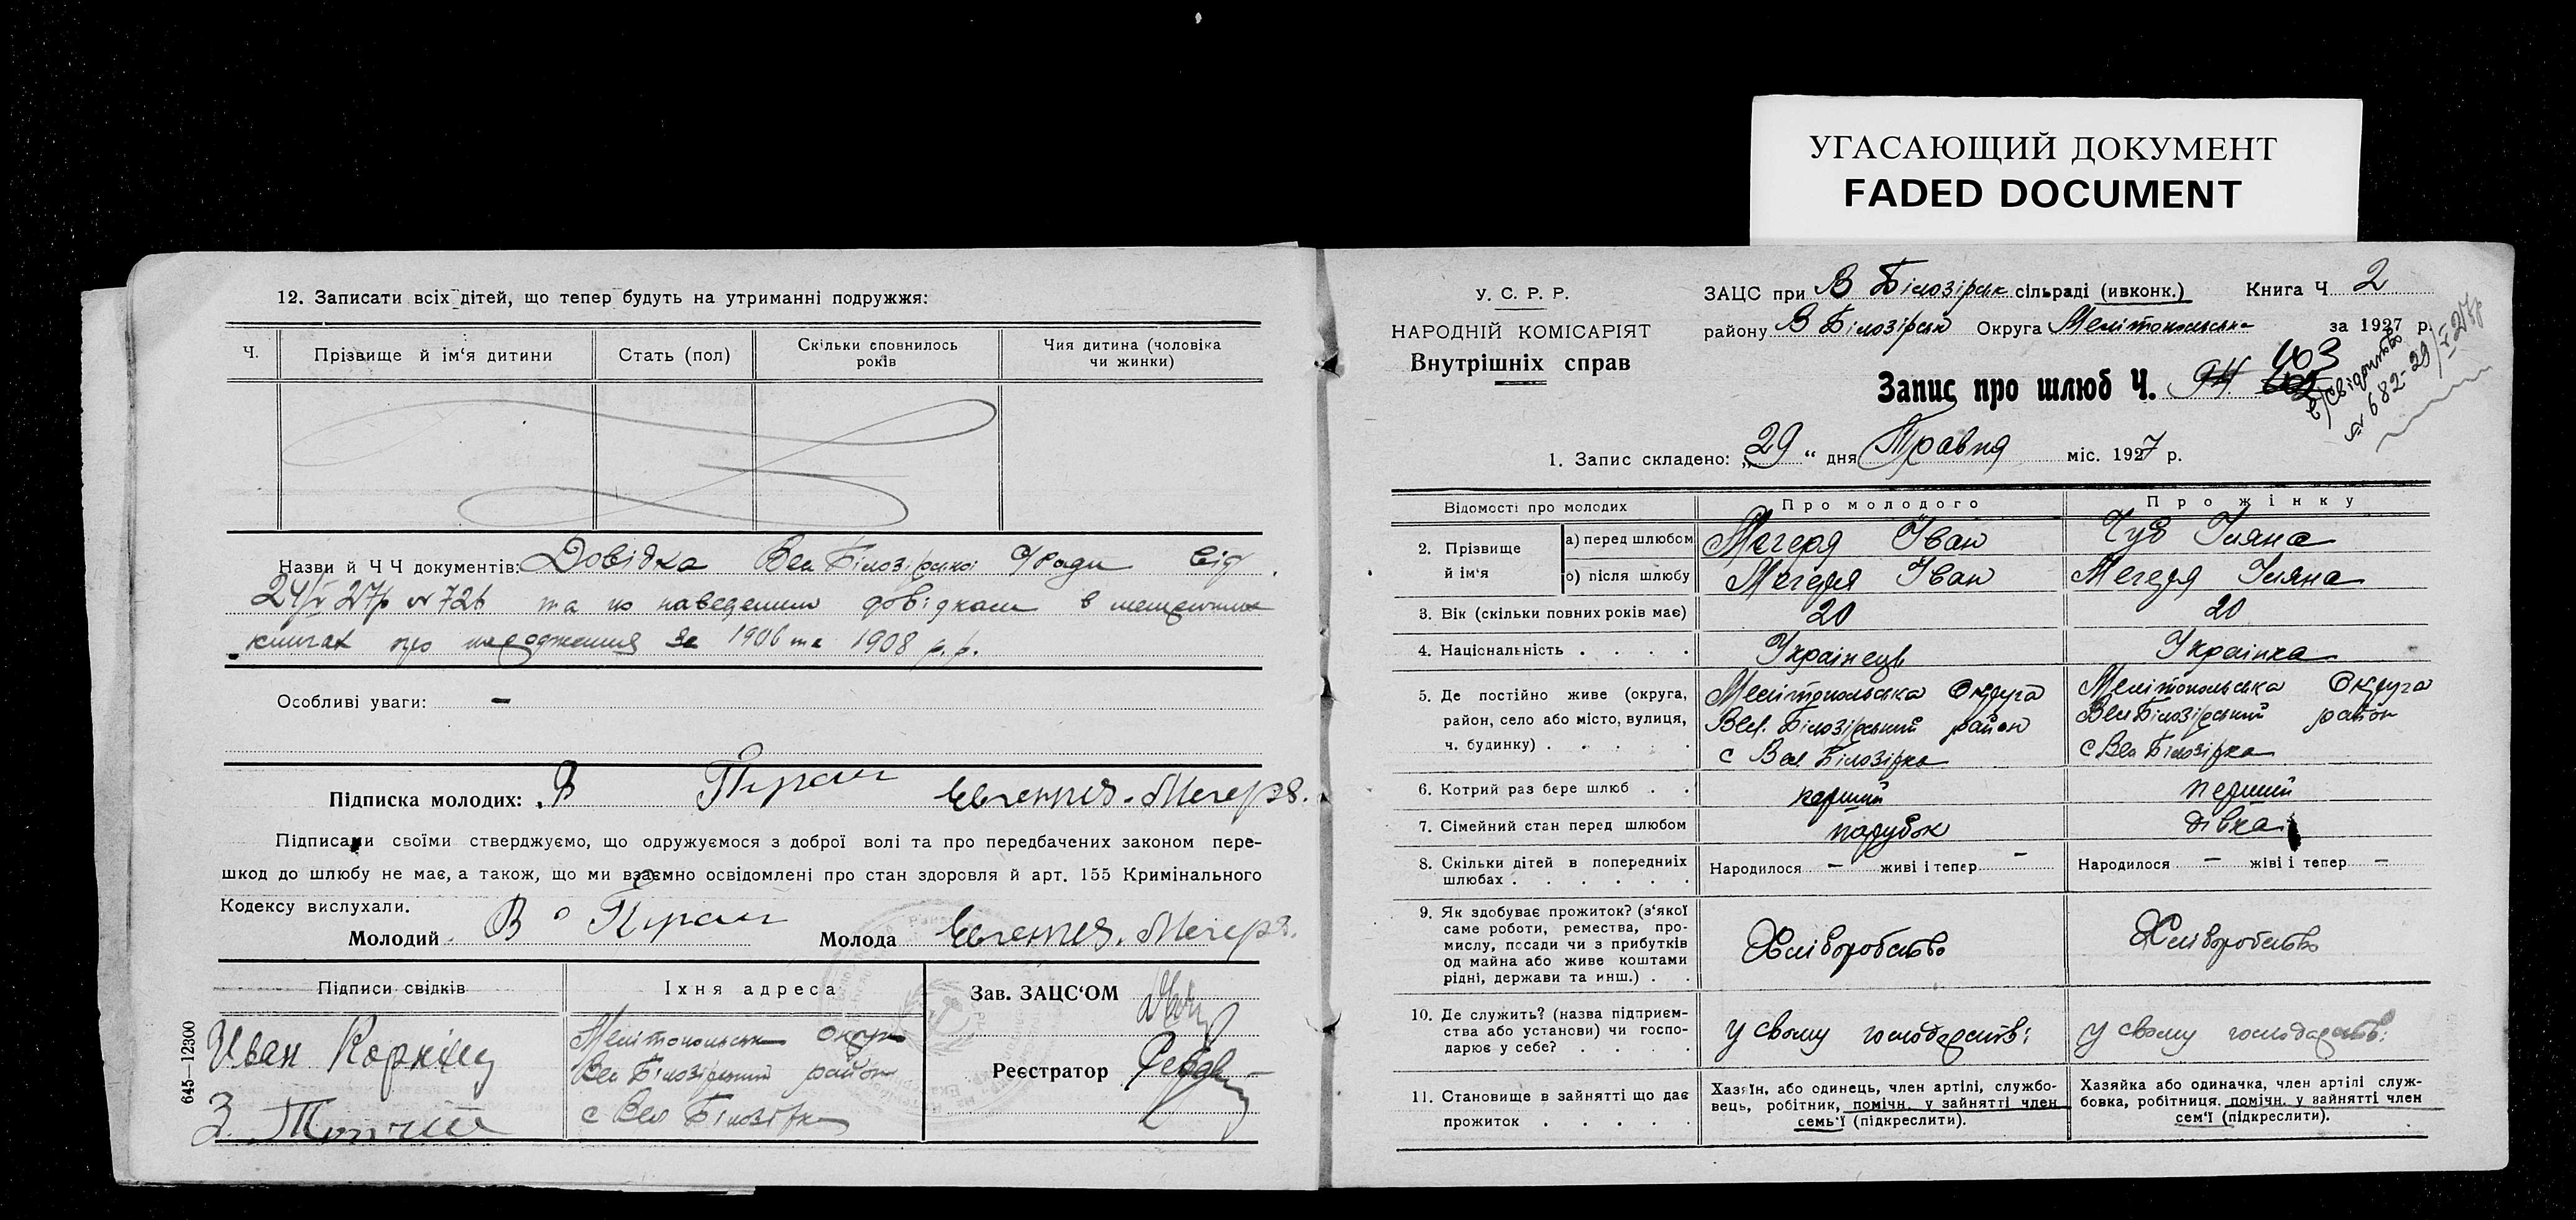 УГАСАЮЩИЙ ДОКУМЕНТ
FADED DOCUMENT
12. Записати всіх дітей, що тепер будуть на утриманні подружжя:
Ч.
Прізвище й ім'я дитини
Стать (пол)
Скільки сповнилось
років
Чия дитина (чоловіка
чи жинки)
Назви й Ч Ч документів: Довідка Вел Білозірської С/ради від
24/V 27р № 726 та по наведеним довідкам в метричних
книгах про народження за 1906 та 1908 р.р.
Особливі уваги: —
Підписка молодих:
Підписами своїми стверджуємо, що одружуємося з доброї волі та про передбачених законом пере-
шкод до шлюбу не має, а також, що ми взаємно освідомлені про стан здоровля й арт. 155 Кримінального
Кодексу вислухали.
Молодий
Молода
Підписи свідків
Їхня адреса
Иван
Мелітопольськ округ
Вел Білозірський район
с Вел Білозірка
Зав. ЗАЦС'ОМ
Реєстратор
645—12300
У. С. Р. Р.
НАРОДНІЙ КОМІСАРІЯТ
Внутрішніх справ
ЗАЦС при В Білозірськ сільраді (ивконк.) Книга Ч 2
району В Білозірськ Округа Мелітопольська за 1927 р.
Запис про шлюб Ч. 94 103
в/свідоцтво
№ 682-29/V 27р
1. Запис складено: „29“ дня Травня міс. 1927 р.
Відомості про молодих
Про молодого
Про жінку
2. Прізвище
й ім'я
а) перед шлюбом
Мегеря Іван
Чуб Уляна
о) після шлюбу
Мегеря Іван
Мегеря Уляна
3. Вік (скільки повних років має)
20
20
4. Національність . . . .
Українець
Українка
5. Де постійно живе (округа,
район, село або місто, вулиця,
ч. будинку) . . . . .
Мелітопольська Округа
Вел. Білозірський район
с Вел Білозірка
Мелітопольська Округа
Вел Білозірський район
с Вел Білозірка
6. Котрий раз бере шлюб . .
перший
перший
7. Сімейний стан перед шлюбом
парубок
дівка
8. Скільки дітей в попередниіх
шлюбах . . . . . .
Народилося — живі і тепер —
Народилося — жіві і тепер —
9. Як здобуває прожиток? (з'якої
саме роботи, ремества, про-
мислу, посади чи з прибутків
од майна або живе коштами
рідні, держави та инш.) . .
Хліборобство
Хліборобство
10. Де служить? (назва підприєм-
ства або установи) чи госпо-
дарює у себе? . . . .
У свому господарстві
У свому господарстві
11. Становище в зайнятті що дає
прожиток . . . . .
Хазяїн, або одинець, член артілі, службо-
вець, робітник, помічн. у зайнятті член
семь'ї (підкреслити).
Хазяйка або одиначка, член артілі служ-
бовка, робітниця. помічн. у зайнятті член
сем'ї (підкреслити).